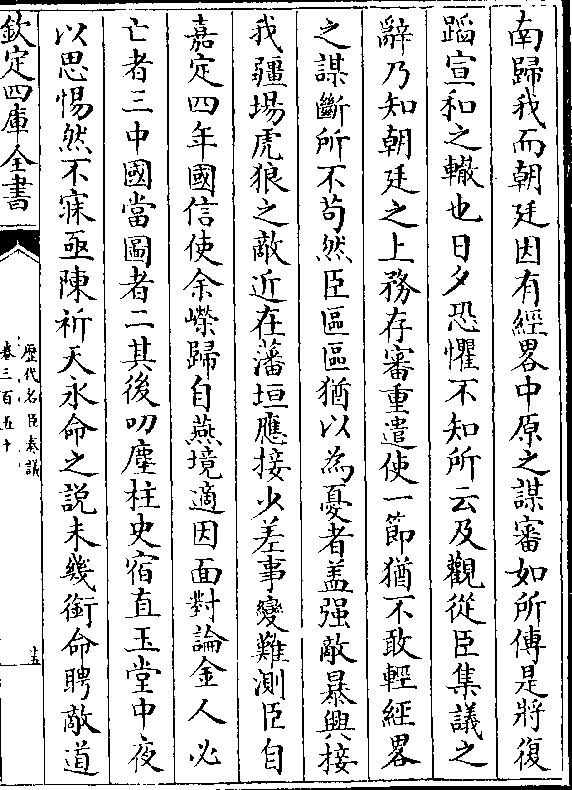 南歸我而朝廷因有經畧中原之謀審如所傳是將復
蹈宣和之轍也日夕恐懼不知所云及觀從臣集議之
辭乃知朝廷之上務存審重遣使一節猶不敢輕經畧
之謀斷所不苟然臣區區猶以為憂者盖强敵㬥興接
我疆場虎狼之敵近在藩垣應接少差事變難測臣自
嘉定四年國信使余嶸歸自燕境適因面對論金人必
亡者三中國當圖者二其後叨塵柱史宿直玉堂中夜
以思惕然不寐亟陳祈天永命之説未幾銜命聘敵道
欽定四庫全書
歷代名臣奏議
卷三百五十
十五